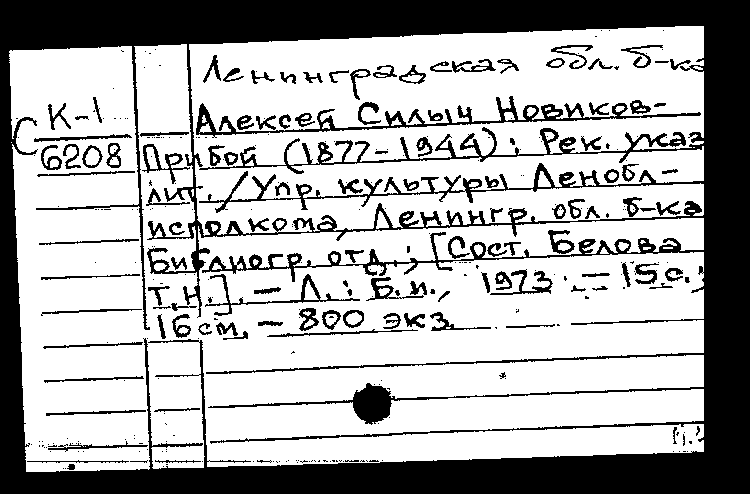 Ленинградская обл. б-ка
С К-1
6208
Алексей Силыч Новиков-
Прибой (1877-1944): Рек. указ
лит. / Упр. культуры Ленобл-
исполкома, Ленингр. обл. б-ка
Библиогр. отд.; [Сост. Белова
Т.Н.]. — Л.: Б.и., 1973. — 15 с.;
16 см. — 800 экз.